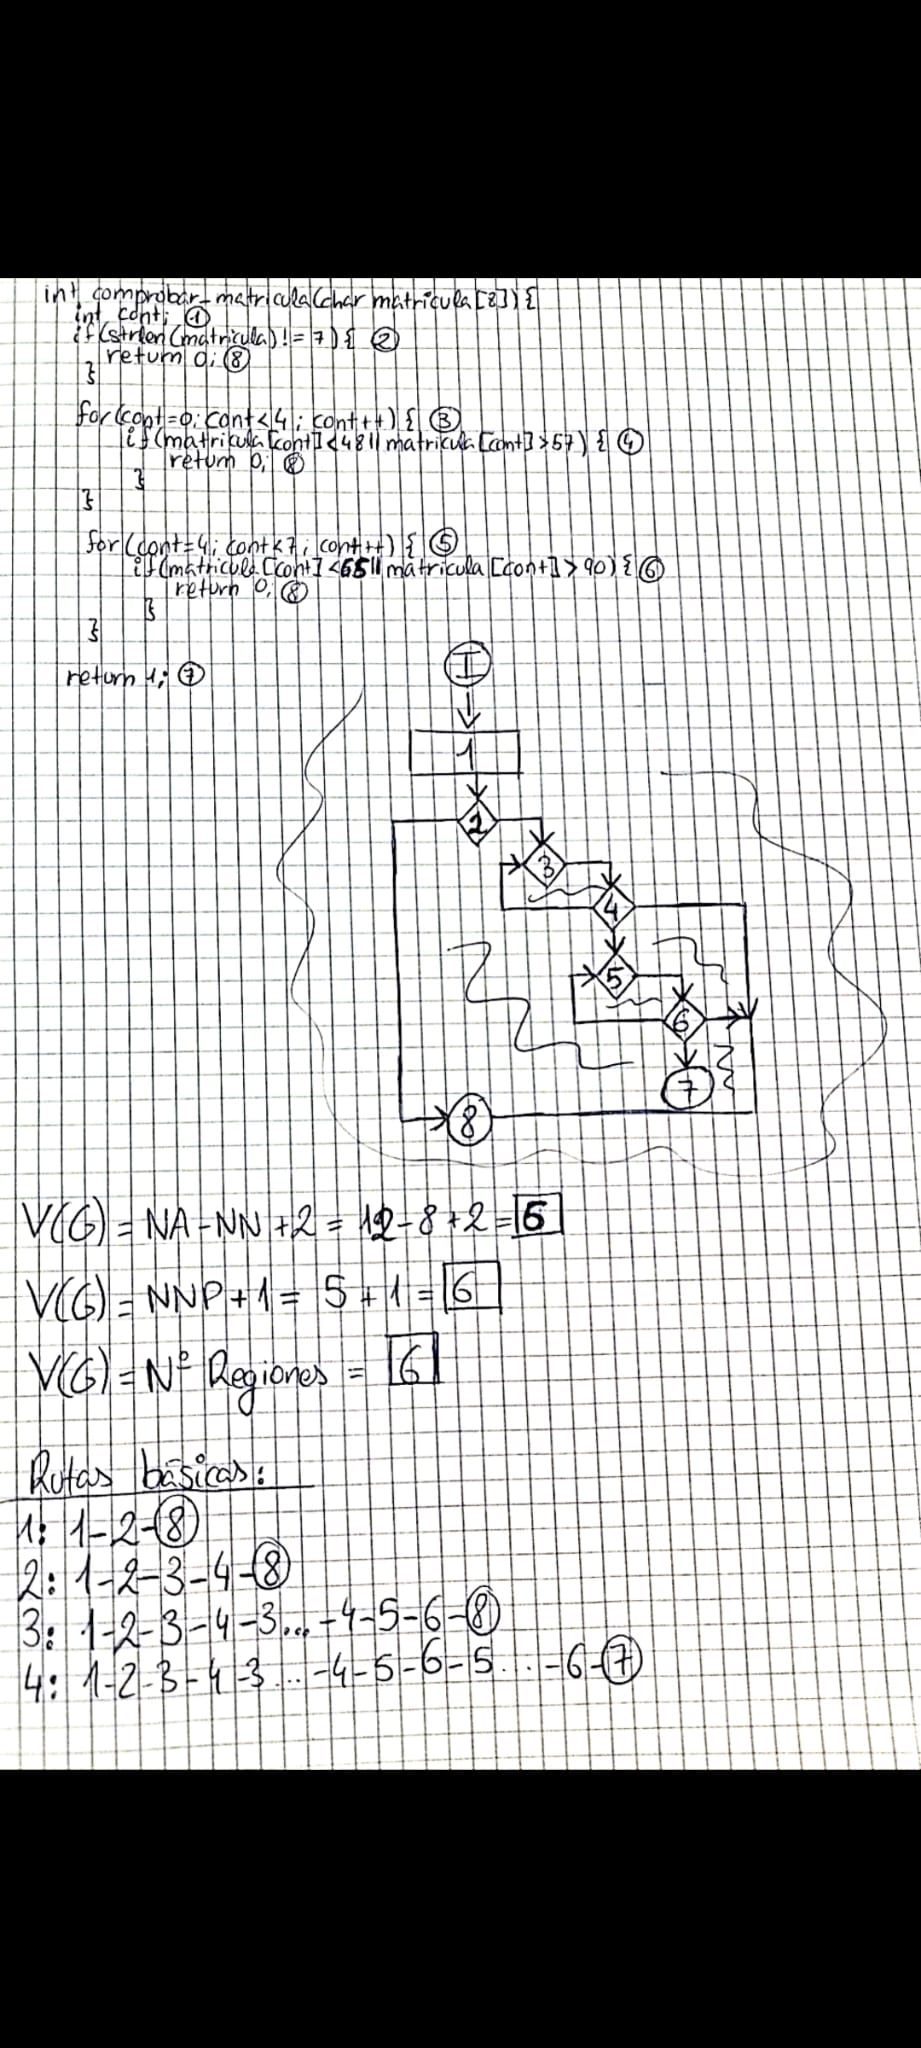 int comprobar_matricula(char matricula[8]) {
int cont; ①
if(strlen(matricula) != 7) { ②
return 0; ⑧
}
for(cont=0; cont<4; cont++) { ③
if(matricula[cont] <48 || matricula[cont] >57) { ④
return 0; ⑧
}
}
for(cont=4; cont<7; cont++) { ⑤
if(matricula[cont] <65 || matricula[cont] > 90) { ⑥
return 0; ⑧
}
}
return 1; ⑦
I
1
2
3
4
5
6
7
8
V(G) = NA-NN+2 = 12-8+2 = 6
V(G) = NNP+1 = 5+1 = 6
V(G) = Nº Regiones = 6
Rutas básicas:
1: 1-2-⑧
2: 1-2-3-4-⑧
3: 1-2-3-4-3...-4-5-6-⑧
4: 1-2-3-4-3...-4-5-6-5...-6-⑦